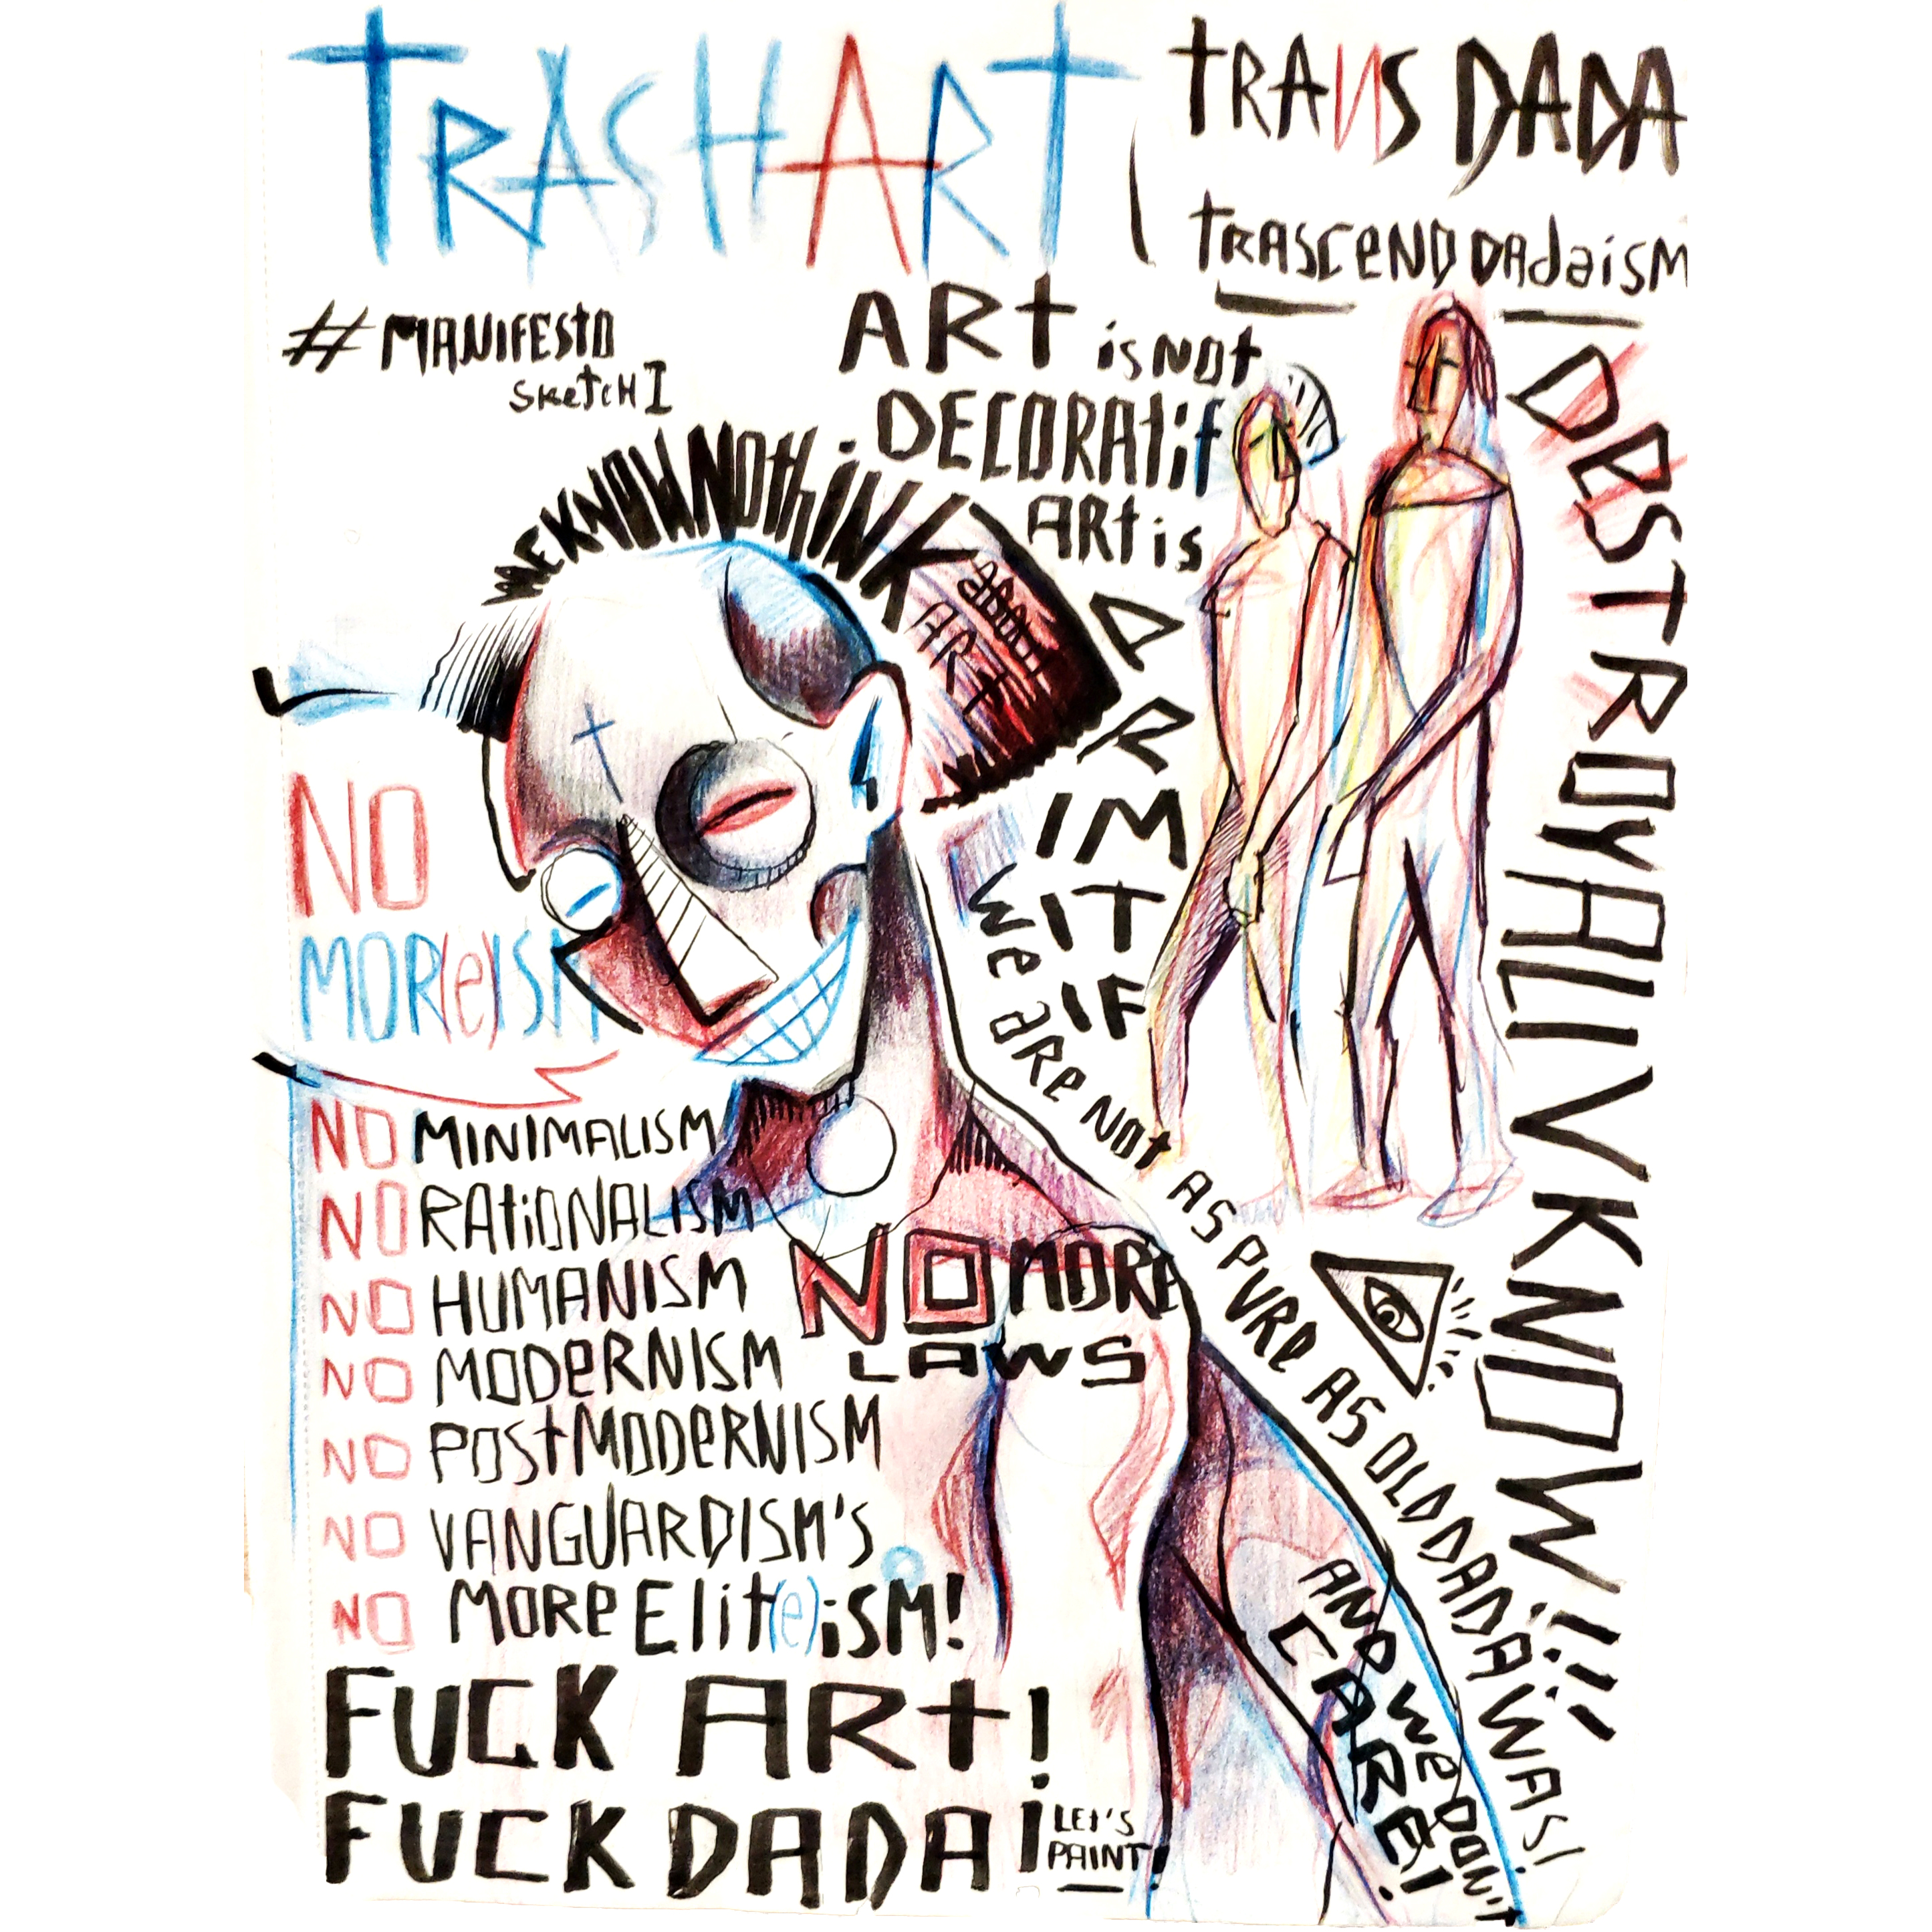 TRASHART
TRANS DADA
TRASCEND DADAISM
# MANIFESTO
SKETCH I
ART is NOT
DECORATIF
ART is
PRIMITIF
WE KNOW NOTHiNK
ART
DESTROY ALL I V KNOW!!!
NO
MOR(e)ISM
We are NOT AS PVRe AS OLD DADA WAS!
NO MINIMALISM
NO RATIONALISM
NO HUMANISM
NO MODERNISM
NO POSTMODERNISM
NO VANGUARDISM'S
NO MORE Elit(e)iSM!
NO MORE
LAWS
AND We DON't
CARE!
FUCK ART!
FUCK DADA!
LEt'S
PAINT!